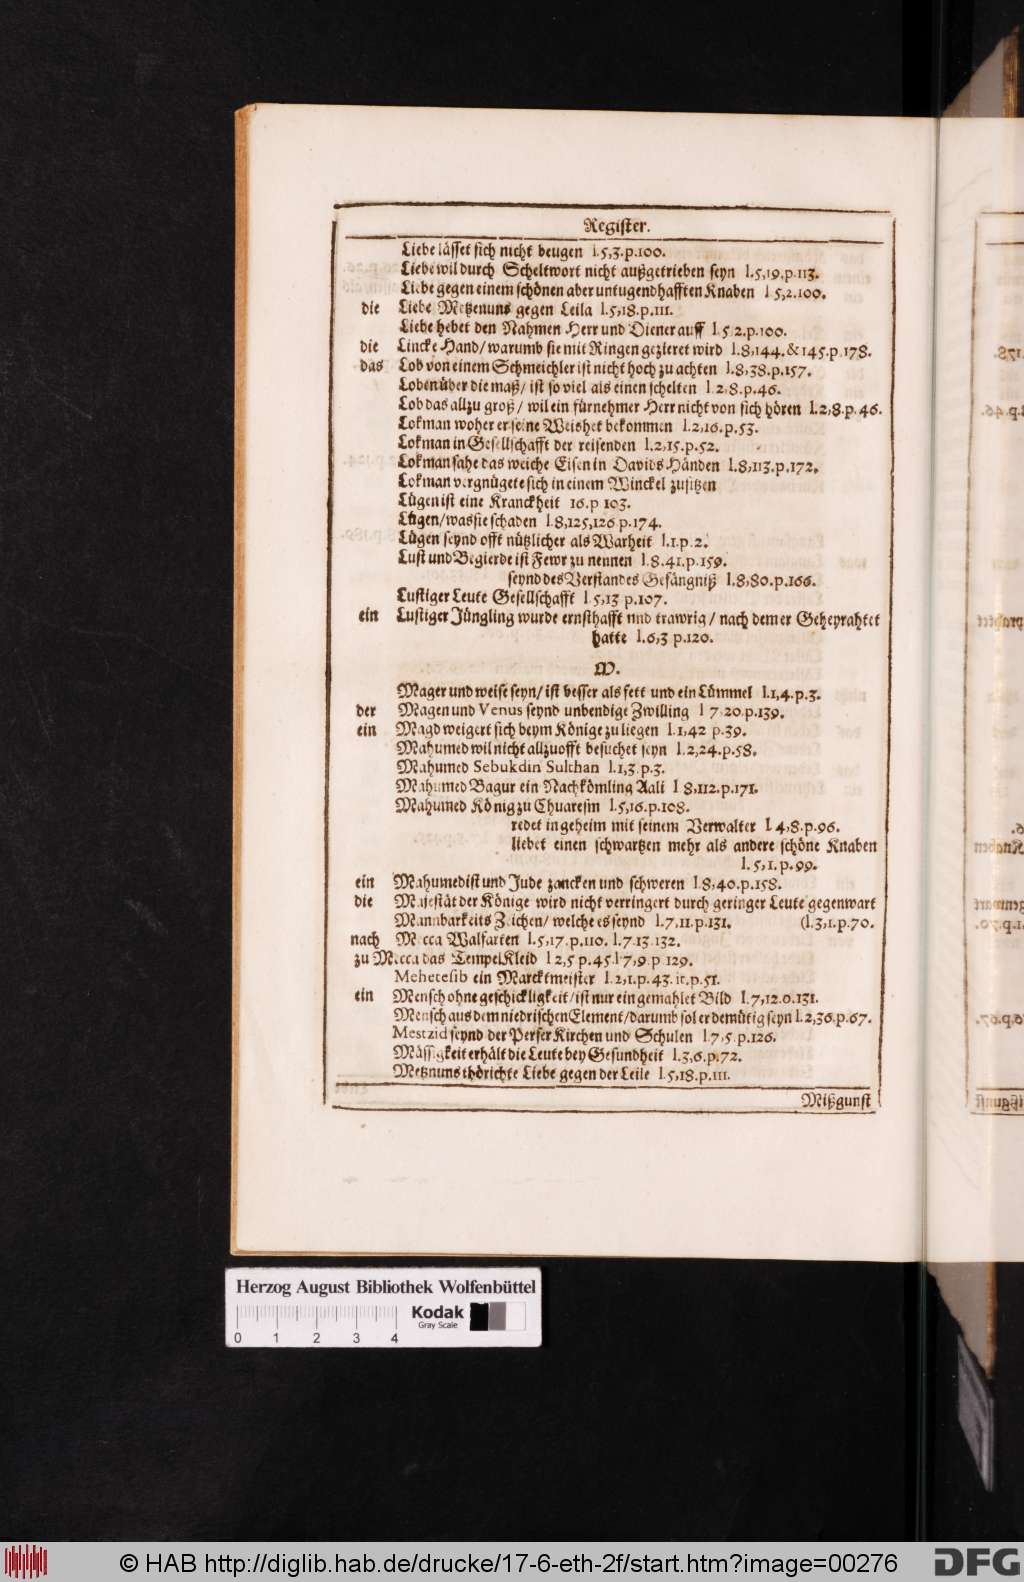 Register.
Liebe lässet sich nicht beugen l.5,3.p.100.
Liebe wil durch Scheltwort nicht außgetrieben seyn l.5,19,p.113.
Liebe gegen einem schönen aber untugendhafften Knaben l 5,2.100.
die Liebe Metzenuns gegen Leila l.5,18.p.111.
Liebe hebet den Nahmen Herr und Diener auff l 5 2.p.100.
die Lincke Hand/ warumb sie mit Ringen gezieret wird l.8,144.&145.p.178.
das Lob von einem Schmeichler ist nicht hoch zu achten l.8,38.p.157.
Loben über die maß/ ist so viel als einen schelten l 2,8.p.46.
Lob das allzu groß/ wil ein fürnehmer Herr nicht von sich hören l.2,8.p.46.
Lokman woher er seine Weisheit bekommen l.2,16.p.53.
Lokman in Gesellschafft der reisenden l.2,15.p.52.
Lokman sahe das weiche Eisen in Davids Händen l.8,113.p.172.
Lokman vergnügete sich in einem Winckel zusitzen
Lügen ist eine Kranckheit 16.p 103.
Lügen/ was sie schaden l 8,125,126 p.174.
Lügen seynd offt nützlicher als Warheit l.1.p.2.
Lust und Begierde ist Fewr zu nennen l.8.41.p.159.
seynd des Verstandes Gefängniß l.8,80.p.166.
Lustiger Leute Gesellschafft l 5,13 p.107.
ein Lustiger Jüngling wurde ernsthafft und trawrig/ nach dem er Geheyrahtet
hatte l.6,3 p.120.
M.
Mager und weise seyn/ ist besser als fett und ein Lümmel l.1,4.p.3.
der Magen und Venus seynd unbendige Zwilling l 7.20.p.139.
ein Magd weigert sich beym Könige zu liegen l.1,42 p.39.
Mahumed wil nicht allzuofft besuchet seyn l.2,24.p.58.
Mahumed Sebukdin Sulthan l.1,3.p.3.
Mahumed Bagur ein Nachkömling Aali l 8,112.p.171.
Mahumed König zu Chuaresm l 5,16.p.108.
redet in geheim mit seinem Verwalter l 4,8.p.96.
liebet einen schwartzen mehr als andere schöne Knaben
l.5,1.p.99.
ein Mahumedist und Jude zancken und schweren l 8,40.p.158.
die Majestät der Könige wird nicht verringert durch geringer Leute gegenwart
Mannbarkeits Zeichen/ welche es seynd l.7,11.p.131. (l.3,1.p.70.
nach Mecca Walfarten l.5,17.p.110. l.7.13.132.
zu Mecca das Tempel Kleid l 2,5 p.45.l 7,9.p 129.
Mehetesib ein Marcktmeister l.2,1.p.43.it.p.51.
ein Mensch ohne geschickligkeit/ ist nur ein gemahlet Bild l.7,12.0.131.
Mensch aus dem niedrischen Element/ darumb sol er demütig seyn l.2,36.p.67.
Mestzid seynd der Perser Kirchen und Schulen l.7,5.p.126.
Mässigkeit erhält die Leute bey Gesundheit l.3,6.p.72.
Metznuns thörichte Liebe gegen der Leile l.5,18.p.111.
Mißgunst
Herzog August Bibliothek Wolfenbüttel
Kodak
Gray Scale
0 1 2 3 4
© HAB http://diglib.hab.de/drucke/17-6-eth-2f/start.htm?image=00276
DFG